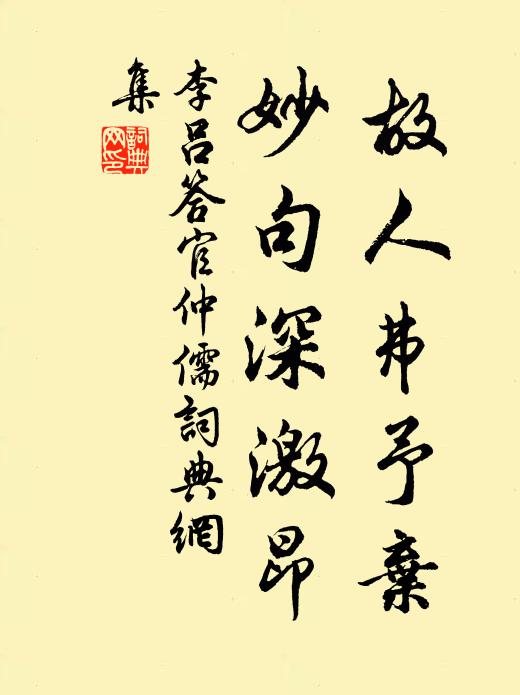 故人弗予棄
妙句深激昂
李呂答官仲儒詞典網
集
詞典
网印